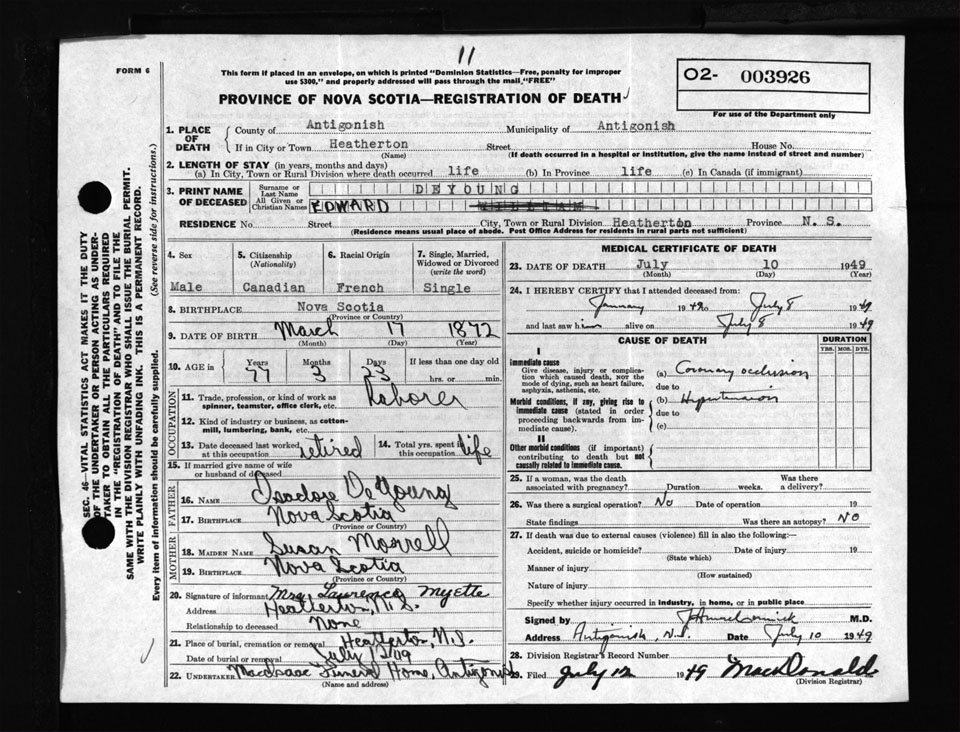 11
FORM 6
This form if placed in an envelope, on which is printed "Dominion Statistics—Free, penalty for improper
use $300," and properly addressed will pass through the mail "FREE"
O2- 003926
For use of the Department only
PROVINCE OF NOVA SCOTIA—REGISTRATION OF DEATH
1. PLACE OF DEATH County of Antigonish Municipality of Antigonish
If in City or Town Heatherton Street House No.
(Name) (If death occurred in a hospital or institution, give the name instead of street and number)
2. LENGTH OF STAY (in years, months and days)
(a) In City, Town or Rural Division where death occurred life (b) In Province life (c) In Canada (if immigrant)
3. PRINT NAME OF DECEASED Surname or Last Name DEYOUNG
All Given or Christian Names EDWARD WILLIAM
RESIDENCE No. Street City, Town or Rural Division Heatherton Province N. S.
(Residence means usual place of abode. Post Office Address for residents in rural parts not sufficient)
4. Sex 5. Citizenship (Nationality) 6. Racial Origin 7. Single, Married, Widowed or Divorced (write the word)
Male Canadian French Single
8. BIRTHPLACE Nova Scotia
(Province or Country)
9. DATE OF BIRTH March 17 1872
(Month) (Day) (Year)
10. AGE in Years Months Days If less than one day old
77 3 23 hrs. or min.
OCCUPATION
11. Trade, profession, or kind of work as spinner, teamster, office clerk, etc. Laborer
12. Kind of industry or business, as cotton-mill, lumbering, bank, etc.
13. Date deceased last worked at this occupation retired 14. Total yrs. spent in this occupation life
15. If married give name of wife or husband of deceased
FATHER
16. NAME Isadore DeYoung
17. BIRTHPLACE Nova Scotia
(Province or Country)
MOTHER
18. MAIDEN NAME Susan Morrell
19. BIRTHPLACE Nova Scotia
(Province or Country)
20. Signature of informant Mrs. Lawrence Myette
Address Heatherton, N.S.
Relationship to deceased None
21. Place of burial, cremation or removal Heatherton, N.S.
Date of burial or removal July 12/49
22. UNDERTAKER MacIsaac Funeral Home, Antigonish
(Name and address)
MEDICAL CERTIFICATE OF DEATH
23. DATE OF DEATH July 10 1949
(Month) (Day) (Year)
24. I HEREBY CERTIFY that I attended deceased from:
January 1948 to July 8 1949
and last saw him alive on July 8 1949
CAUSE OF DEATH DURATION
YRS. MOS. DYS.
I
Immediate cause
Give disease, injury or complication which caused death, NOT the mode of dying, such as heart failure, asphyxia, asthenia, etc.
(a) Coronary occlusion
due to
Morbid conditions, if any, giving rise to immediate cause (stated in order proceeding backwards from immediate cause).
(b) Hypertension
due to
(c)
II
Other morbid conditions (if important) contributing to death but not causally related to immediate cause.
25. If a woman, was the death associated with pregnancy? Duration weeks. Was there a delivery?
26. Was there a surgical operation? No Date of operation 19
State findings Was there an autopsy? No
27. If death was due to external causes (violence) fill in also the following:—
Accident, suicide or homicide? Date of injury 19
(State which)
Manner of injury
(How sustained)
Nature of injury
Specify whether injury occurred in industry, in home, or in public place
Signed by M.D.
Address Antigonish, N.S. Date July 10 1949
28. Division Registrar's Record Number
29. Filed July 12 1949 MacDonald
(Division Registrar)
SEC. 46—VITAL STATISTICS ACT MAKES IT THE DUTY
OF THE UNDERTAKER OR PERSON ACTING AS UNDER-
TAKER TO OBTAIN ALL THE PARTICULARS REQUIRED
IN THE "REGISTRATION OF DEATH" AND TO FILE THE
SAME WITH THE DIVISION REGISTRAR WHO SHALL ISSUE THE BURIAL PERMIT.
WRITE PLAINLY WITH UNFADING INK. THIS IS A PERMANENT RECORD.
Every item of information should be carefully supplied. (See reverse side for instructions.)